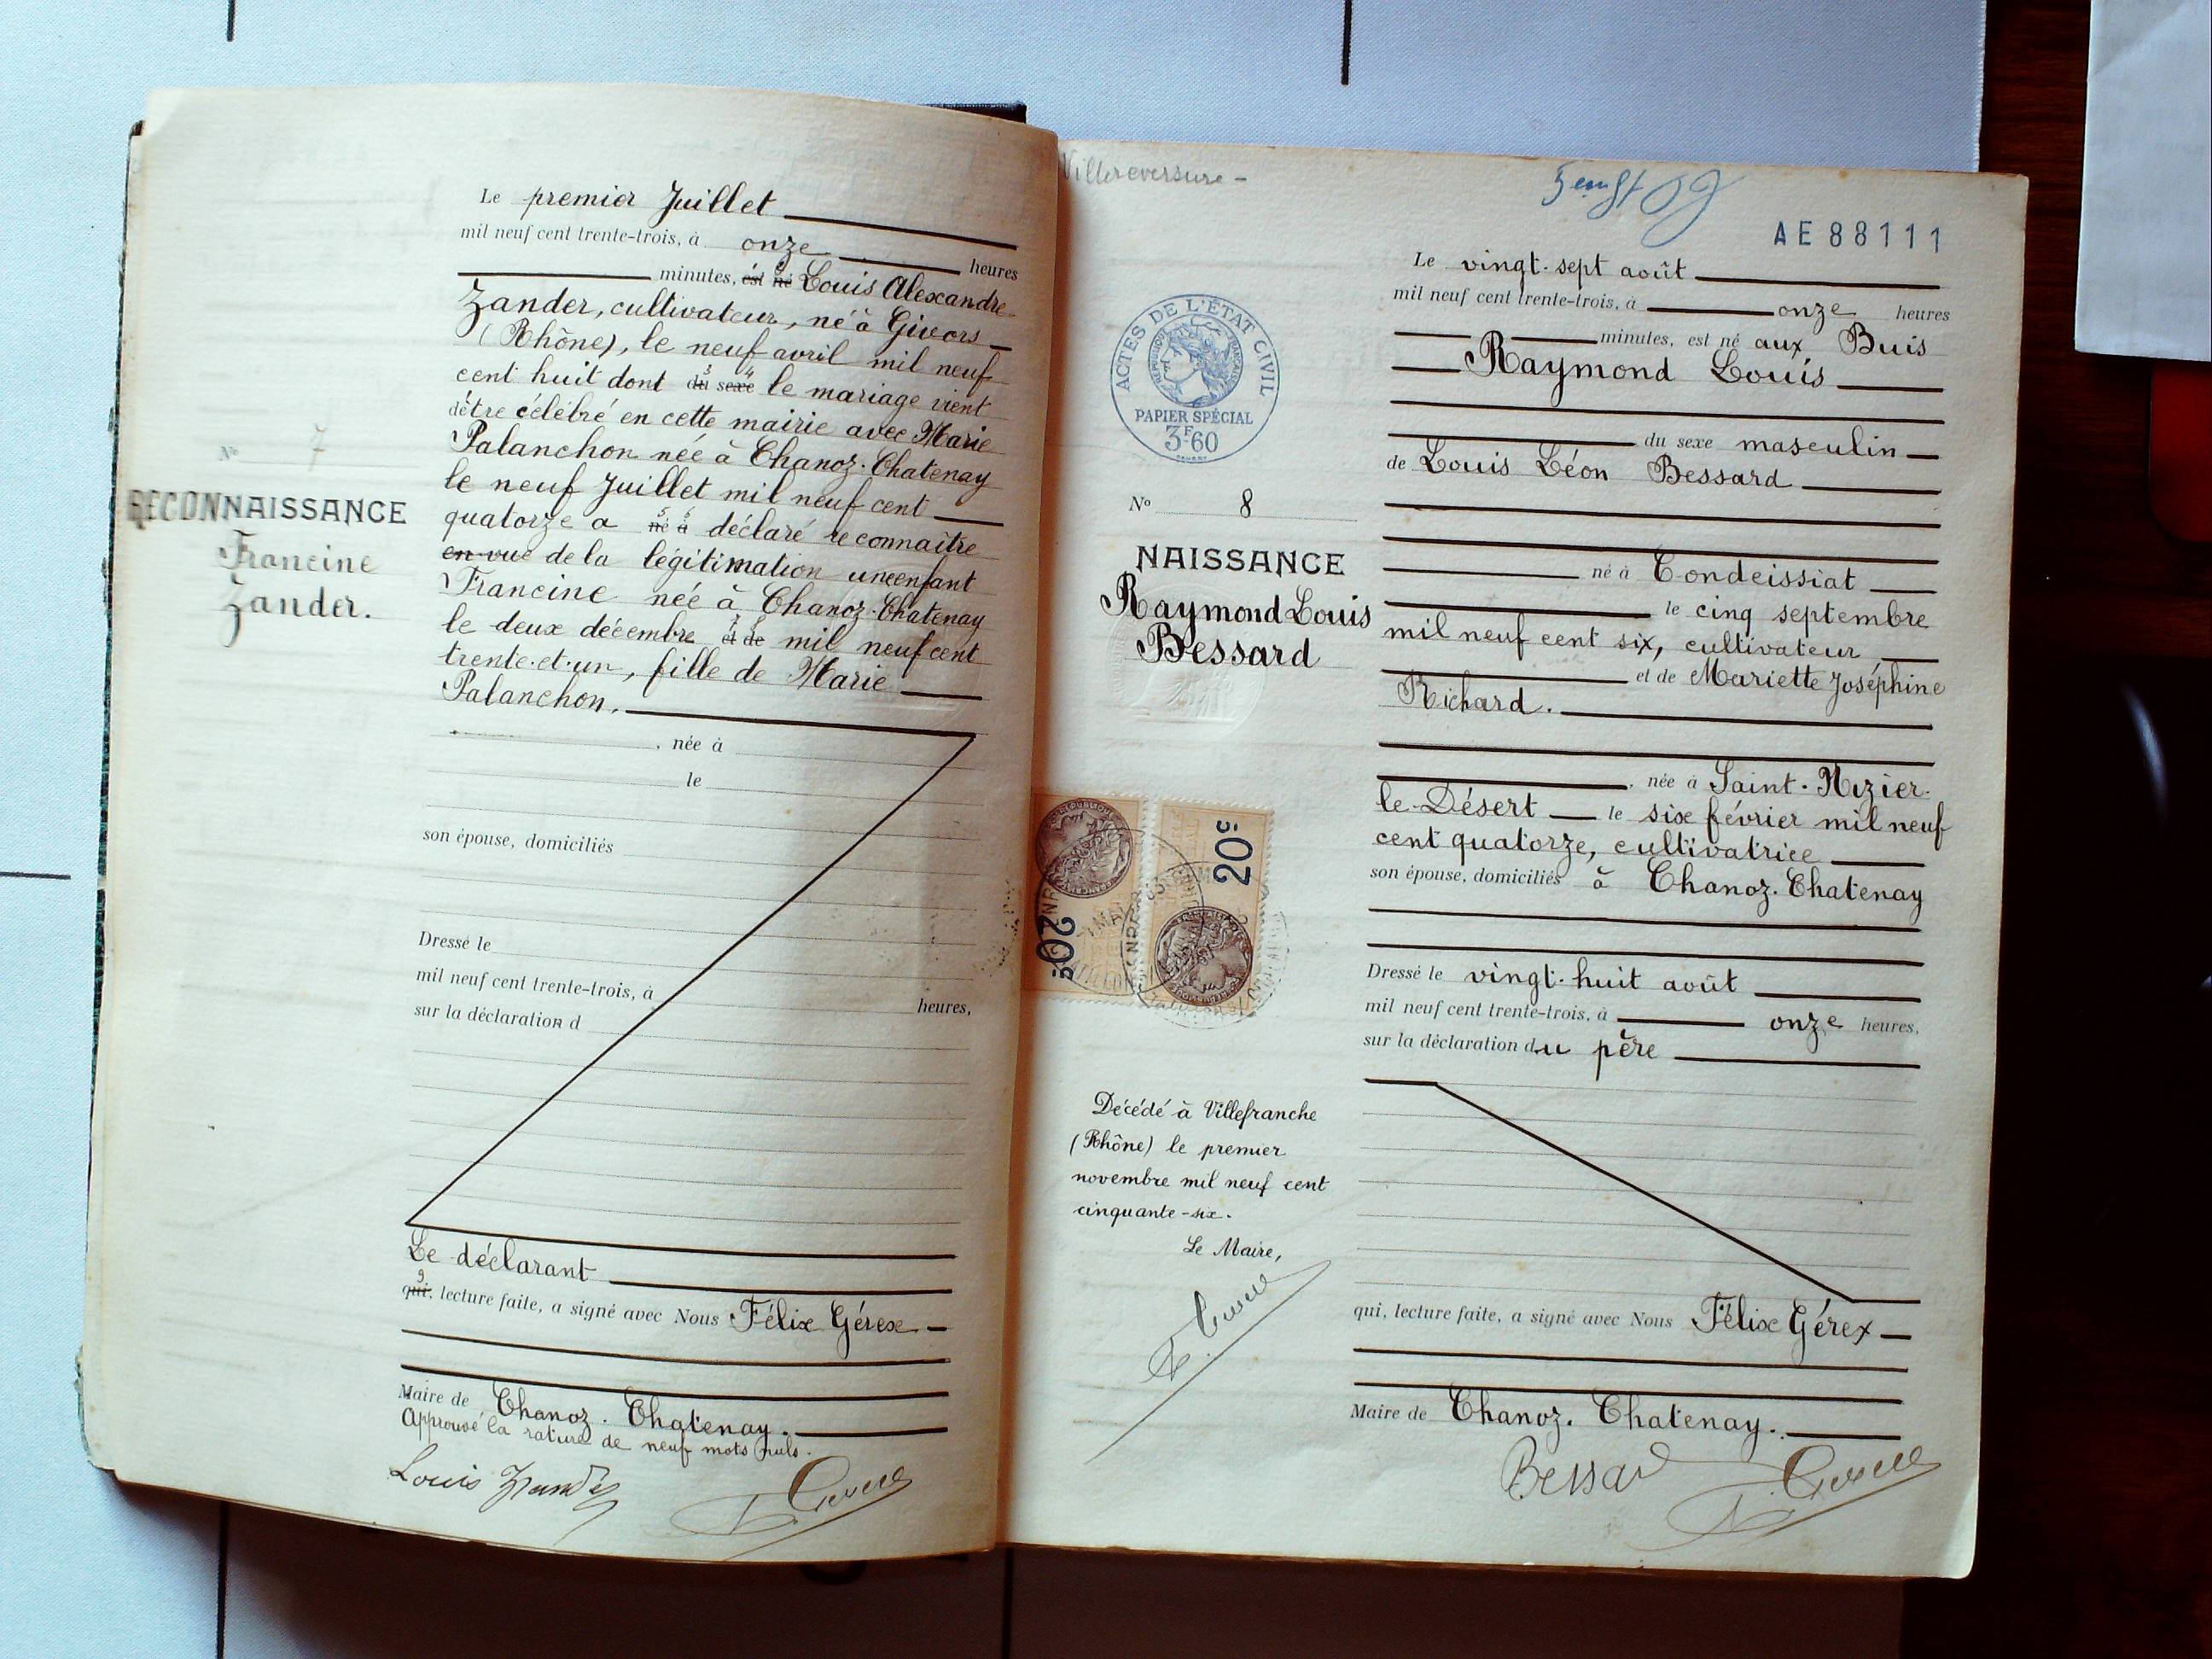 Le premier Juillet
mil neuf cent trente-trois, à onze heures
minutes, est né Louis Alexandre
Zander, cultivateur, né à Givors
(Rhône), le neuf avril mil neuf
cent huit dont du sexe le mariage vient
d'être célébré en cette mairie avec Marie
Palanchon née à Chanoz-Chatenay
le neuf Juillet mil neuf cent
quatorze a né à déclaré reconnaitre
en vue de la légitimation un enfant
Francine née à Chanoz-Chatenay
le deux décembre et de mil neuf cent
trente-et-un, fille de Marie
Palanchon.
, née à
le
son épouse, domiciliés
Dressé le
mil neuf cent trente-trois, à heures,
sur la déclaration d
Le déclarant
qui, lecture faite, a signé avec Nous Félix Gérex
Maire de Chanoz-Chatenay.
Approuvé la rature de neuf mots nuls.
Louis Zander
N° 7
RECONNAISSANCE
Francine
Zander.
Villereversure -
AE 88111
ACTES DE L'ÉTAT CIVIL
RÉPUBLIQUE FRANÇAISE
PAPIER SPÉCIAL
3F60
N° 8
NAISSANCE
Raymond Louis
Bessard
20c
20c
Décédé à Villefranche
(Rhône) le premier
novembre mil neuf cent
cinquante-six.
Le Maire,
Le vingt-sept août
mil neuf cent trente-trois, à onze heures
minutes, est né aux Buis
Raymond Louis
du sexe masculin
de Louis Léon Bessard
né à Condeissiat
le cinq septembre
mil neuf cent six, cultivateur
et de Mariette Joséphine
Richard.
, née à Saint-Nizier-
le-Désert le six février mil neuf
cent quatorze, cultivatrice
son épouse, domiciliés à Chanoz-Chatenay
Dressé le vingt-huit août
mil neuf cent trente-trois, à onze heures,
sur la déclaration du père
qui, lecture faite, a signé avec Nous Félix Gérex
Maire de Chanoz-Chatenay.
Bessard